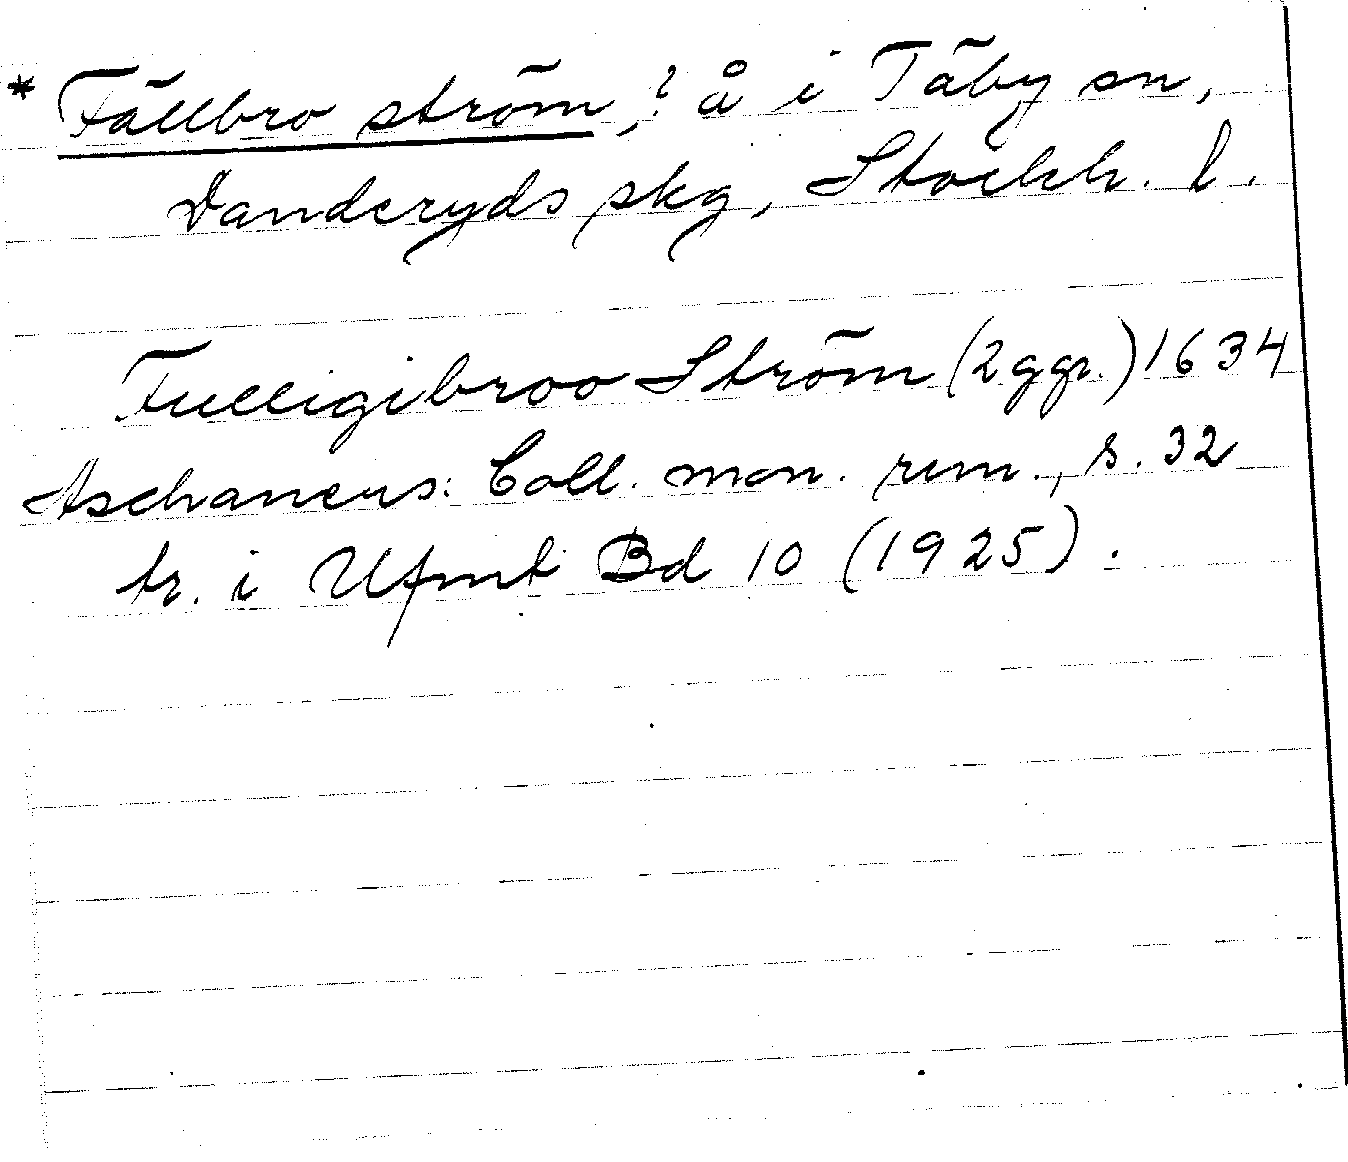 * Fällbro ström,? å i Täby sn,
Danderyds skg, Stockh. l.
Fulligibroo Ström (2 ggr.) 1634
Aschaneus: Coll. mon. run., s. 32
tr. i Ufmt Bd 10 (1925).